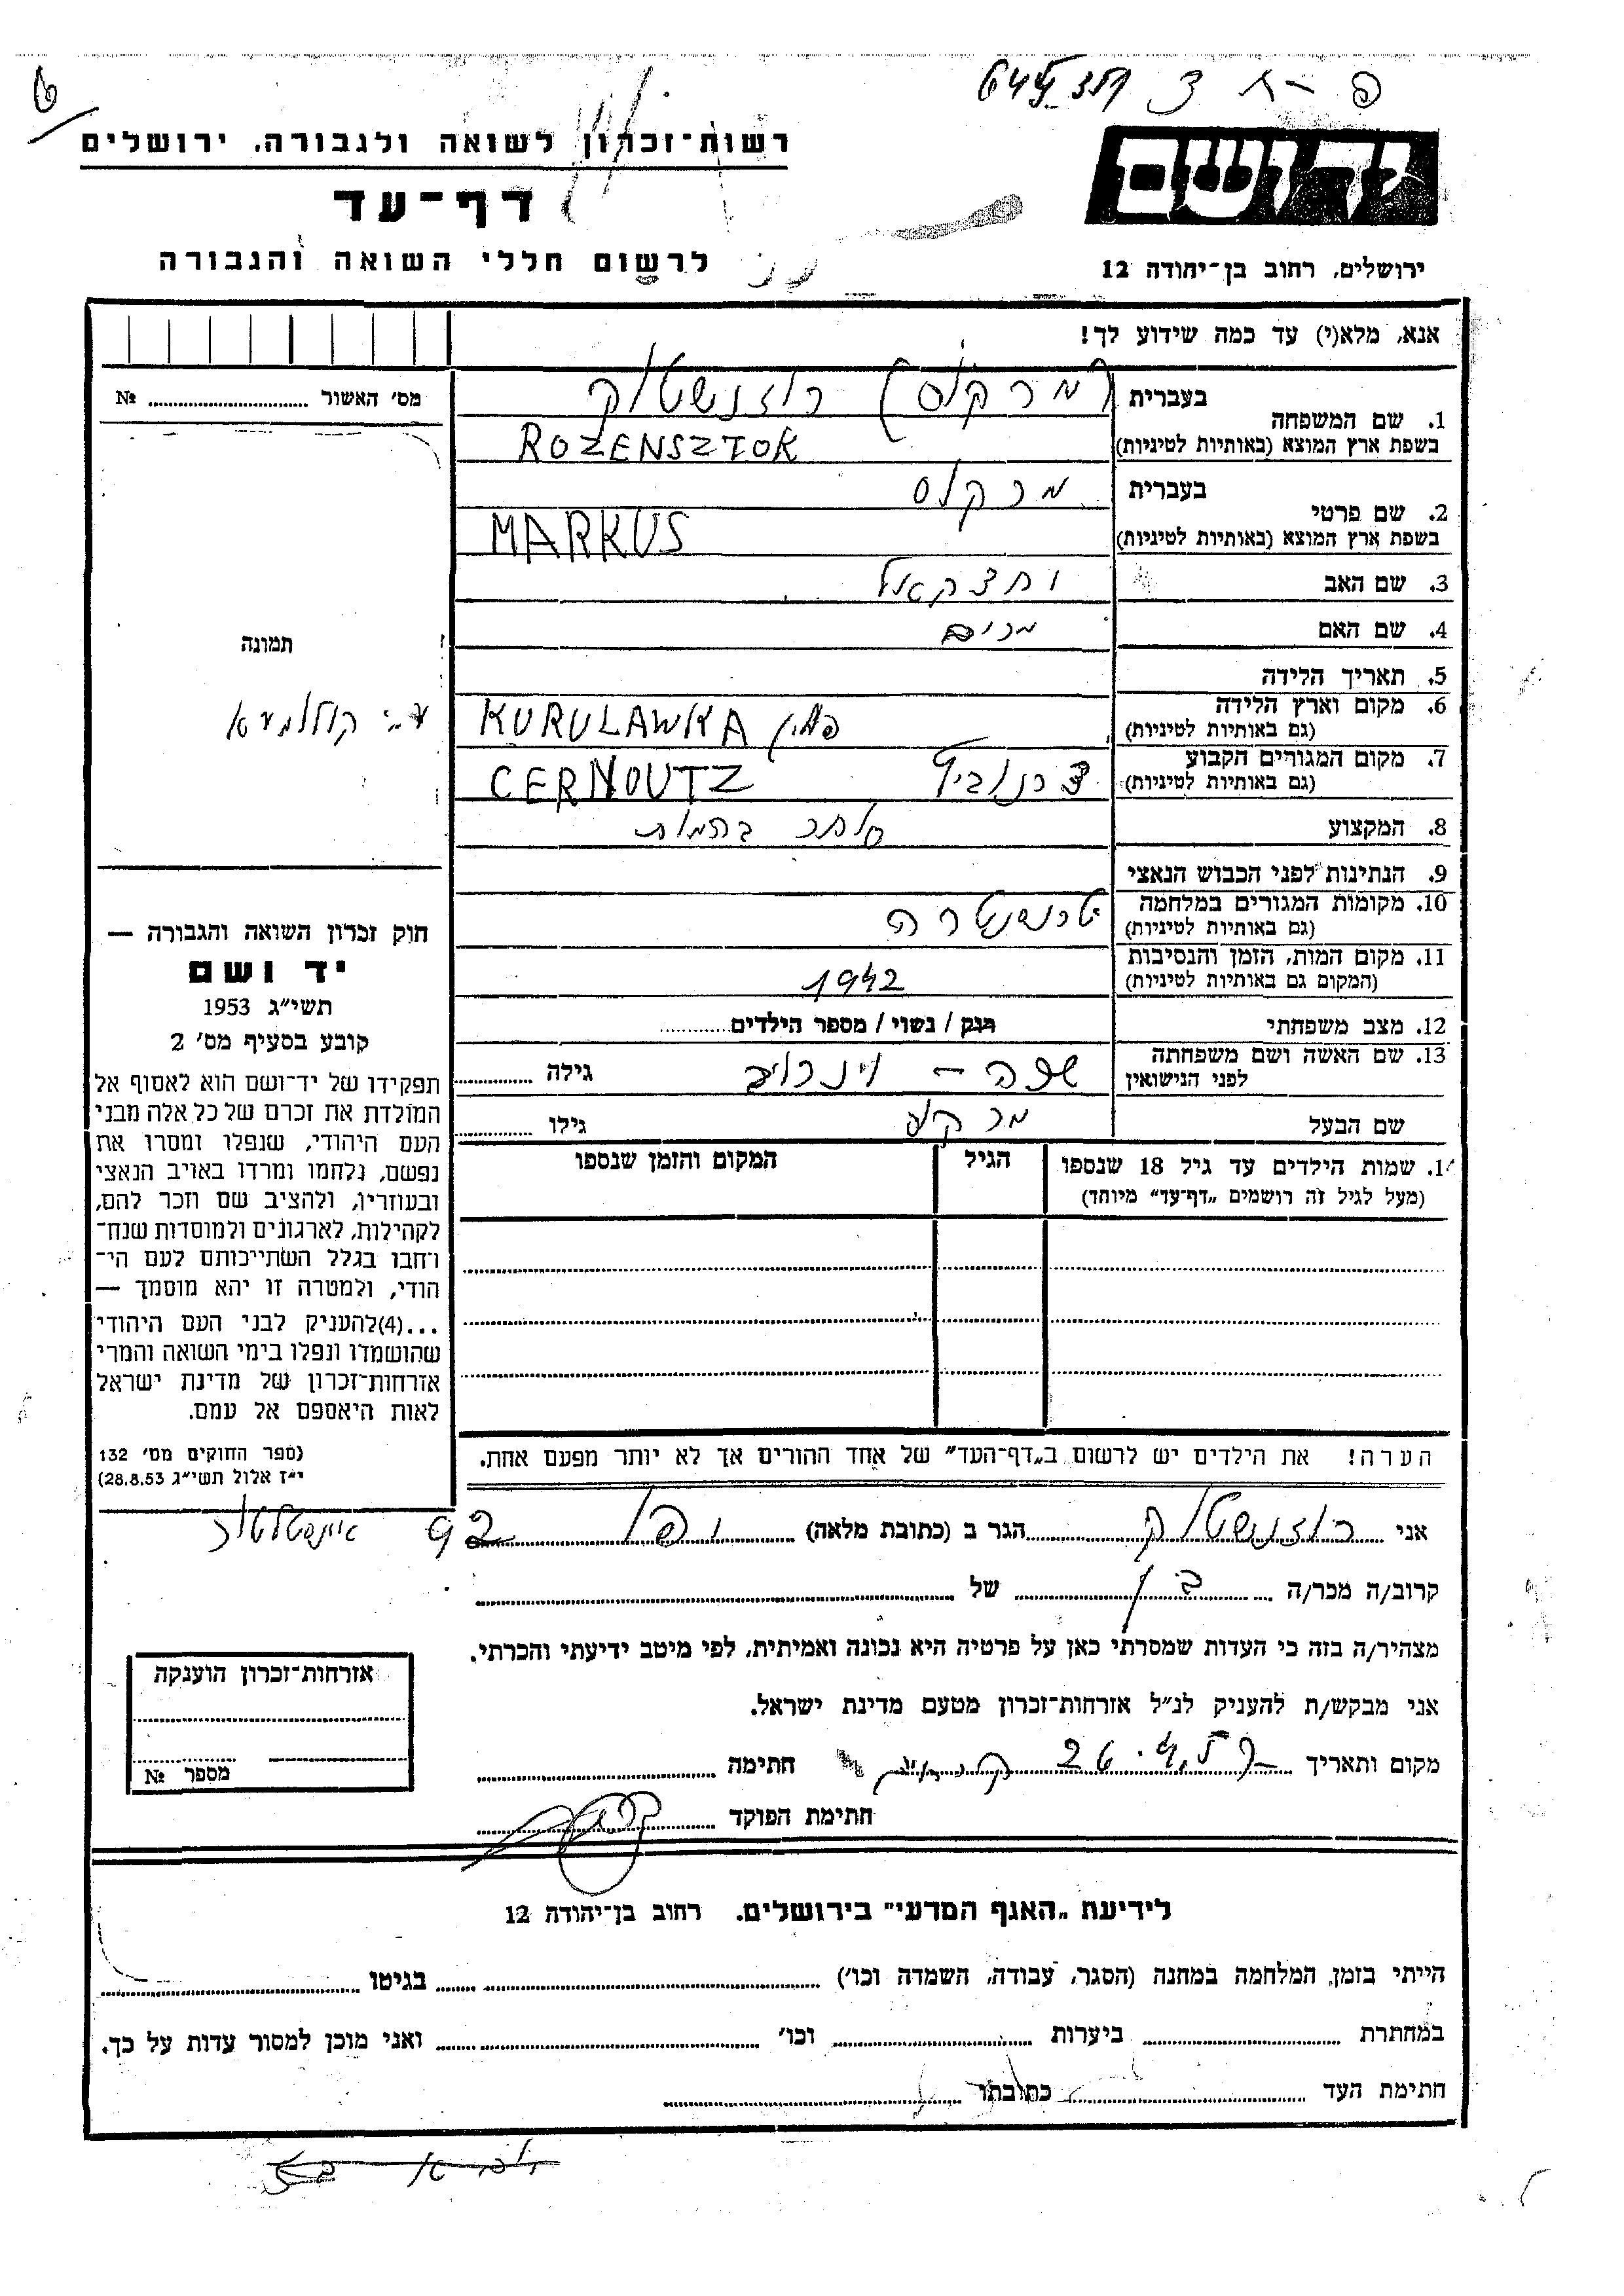 644 351
רשות־זכרון לשואה ולגבורה, ירושלים
יד ושם
דף־עד
לרשום חללי השואה והגבורה
ירושלים, רחוב בן־יהודה 12
אנא, מלא(י) עד כמה שידוע לך!
מס׳ האשור № 
1. שם המשפחה
בעברית (מרקוס) רוזנשטוק
בשפת ארץ המוצא (באותיות לטיניות) ROZENSZTOK
2. שם פרטי
בעברית מרקוס
בשפת ארץ המוצא (באותיות לטיניות) MARKUS
3. שם האב יחזקאל
4. שם האם מרים
תמונה
5. תאריך הלידה
6. מקום וארץ הלידה
(גם באותיות לטיניות) פולין KURULAWKA ע״י קולומיאה
7. מקום המגורים הקבוע
(גם באותיות לטיניות) צרנוביץ CERNOUTZ
8. המקצוע סוחר בהמות
9. הנתינות לפני הכבוש הנאצי
10. מקומות המגורים במלחמה
(גם באותיות לטיניות) טרנסניסטריה
11. מקום המות, הזמן והנסיבות
(המקום גם באותיות לטיניות) 1942
12. מצב משפחתי רוק / נשוי / מספר הילדים
13. שם האשה ושם משפחתה
לפני הנישואין שפרה – וינרוב גילה
שם הבעל מרקוס גילו
14. שמות הילדים עד גיל 18 שנספו
(מעל לגיל זה רושמים „דף־עד״ מיוחד)
הגיל
המקום והזמן שנספו
חוק זכרון השואה והגבורה —
יד ושם
תשי״ג 1953
קובע בסעיף מס׳ 2
תפקידו של יד־ושם הוא לאסוף אל
המולדת את זכרם של כל אלה מבני
העם היהודי, שנפלו ומסרו את
נפשם, נלחמו ומרדו באויב הנאצי
ובעוזריו, ולהציב שם וזכר להם,
לקהילות, לארגונים ולמוסדות שנח־
רבו בגלל השתייכותם לעם הי־
הודי, ולמטרה זו יהא מוסמך —
...(4)להעניק לבני העם היהודי
שהושמדו ונפלו בימי השואה והמרי
אזרחות־זכרון של מדינת ישראל
לאות היאספם אל עמם.
(ספר החוקים מס׳ 132
י״ז אלול תשי״ג 28.8.53)
הערה! את הילדים יש לרשום ב„דף־העד״ של אחד ההורים אך לא יותר מפעם אחת.
אני רוזנשטוק הגר ב (כתובת מלאה) 92
קרוב/ה מכר/ה בן של
מצהיר/ה בזה כי העדות שמסרתי כאן על פרטיה היא נכונה ואמיתית, לפי מיטב ידיעתי והכרתי.
אני מבקש/ת להעניק לנ״ל אזרחות־זכרון מטעם מדינת ישראל.
מקום ותאריך 26.4.57 חתימה
חתימת הפוקד
אזרחות־זכרון הוענקה
מספר №
לידיעת „האגף המדעי״ בירושלים. רחוב בן־יהודה 12
הייתי בזמן המלחמה במחנה (הסגר, עבודה, השמדה וכו׳) בגיטו
במחתרת ביערות וכו׳ ואני מוכן למסור עדות על כך.
חתימת העד כתובתו